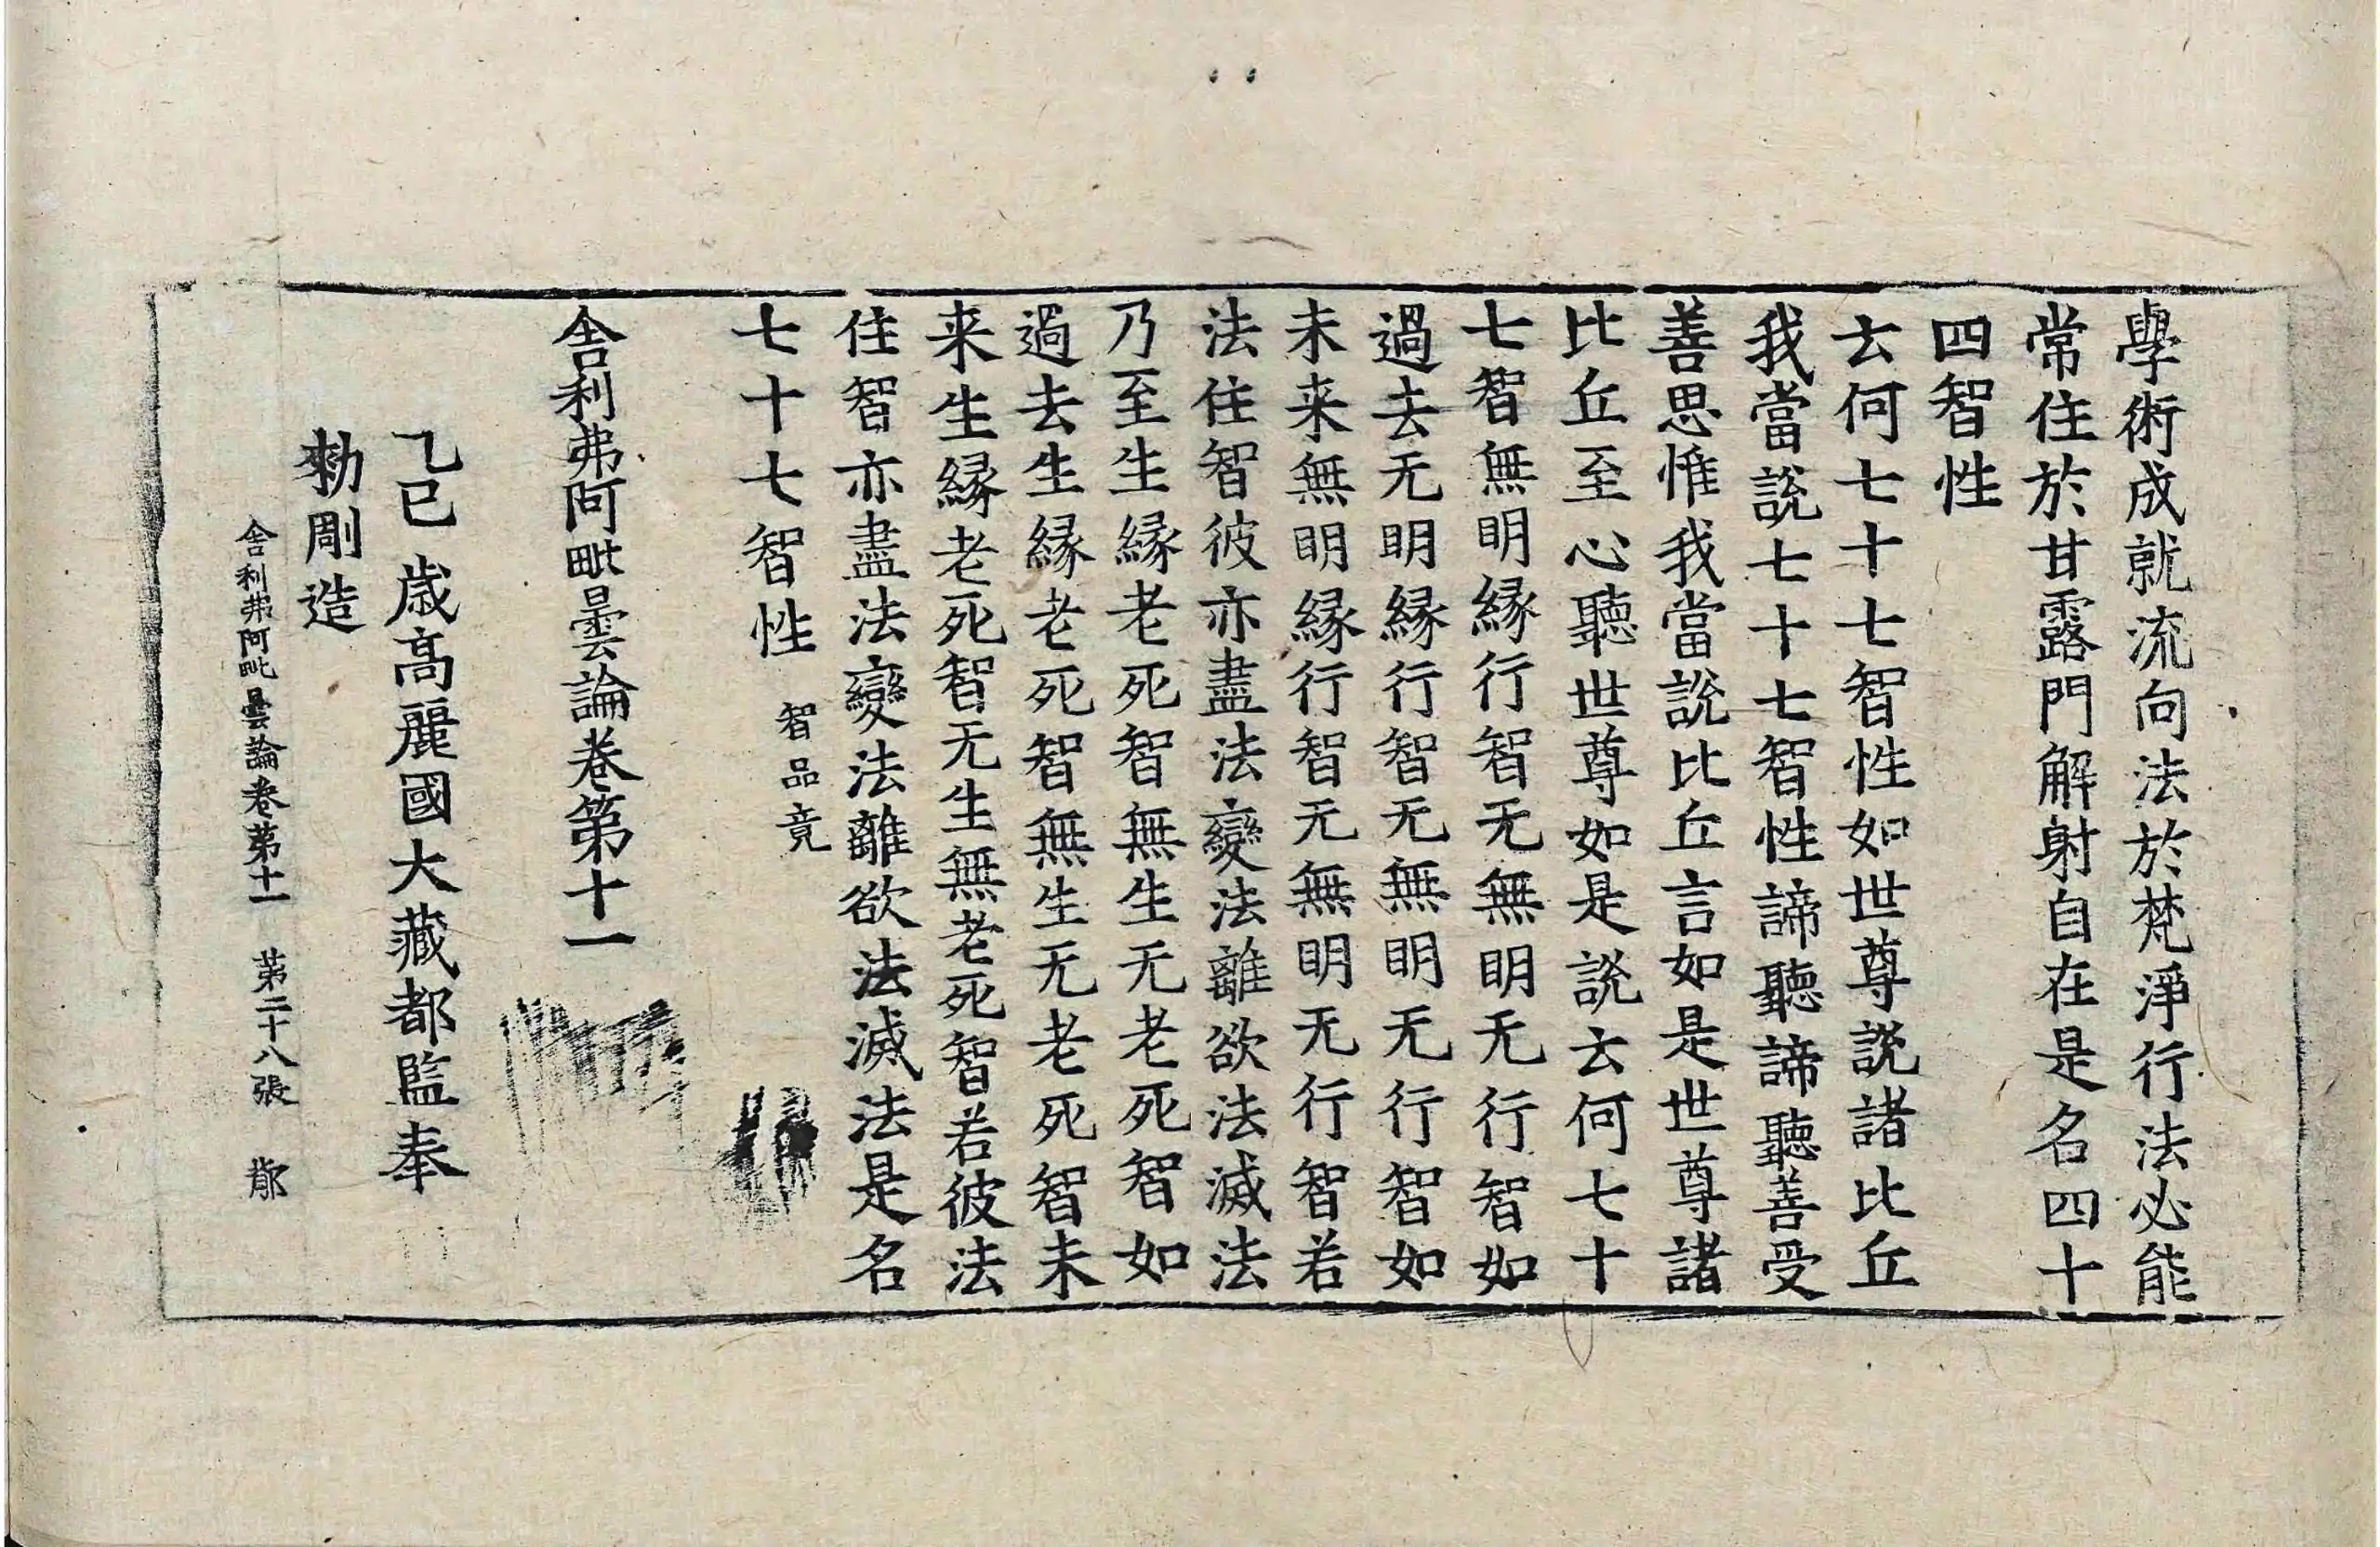 學術成就流向法於梵淨行法必能
常住於甘露門解射自在是名四十
四智性
云何七十七智性如世尊說諸比丘
我當說七十七智性諦聽諦聽善受
善思惟我當說比丘言如是世尊諸
比丘至心聽世尊如是說云何七十
七智無明緣行智无無明无行智如
過去无明緣行智无無明无行智如
未来無明緣行智无無明无行智若
法住智彼亦盡法變法離欲法滅法
乃至生緣老死智無生无老死智如
過去生緣老死智無生无老死智未
来生緣老死智无生無老死智若彼法
住智亦盡法變法離欲法滅法是名
七十七智性 智品竟
舍利弗阿毗曇論卷第十一
乙巳歲高麗國大藏都監奉
勑彫造
舍利弗阿毗曇論卷第十一 第二十八張